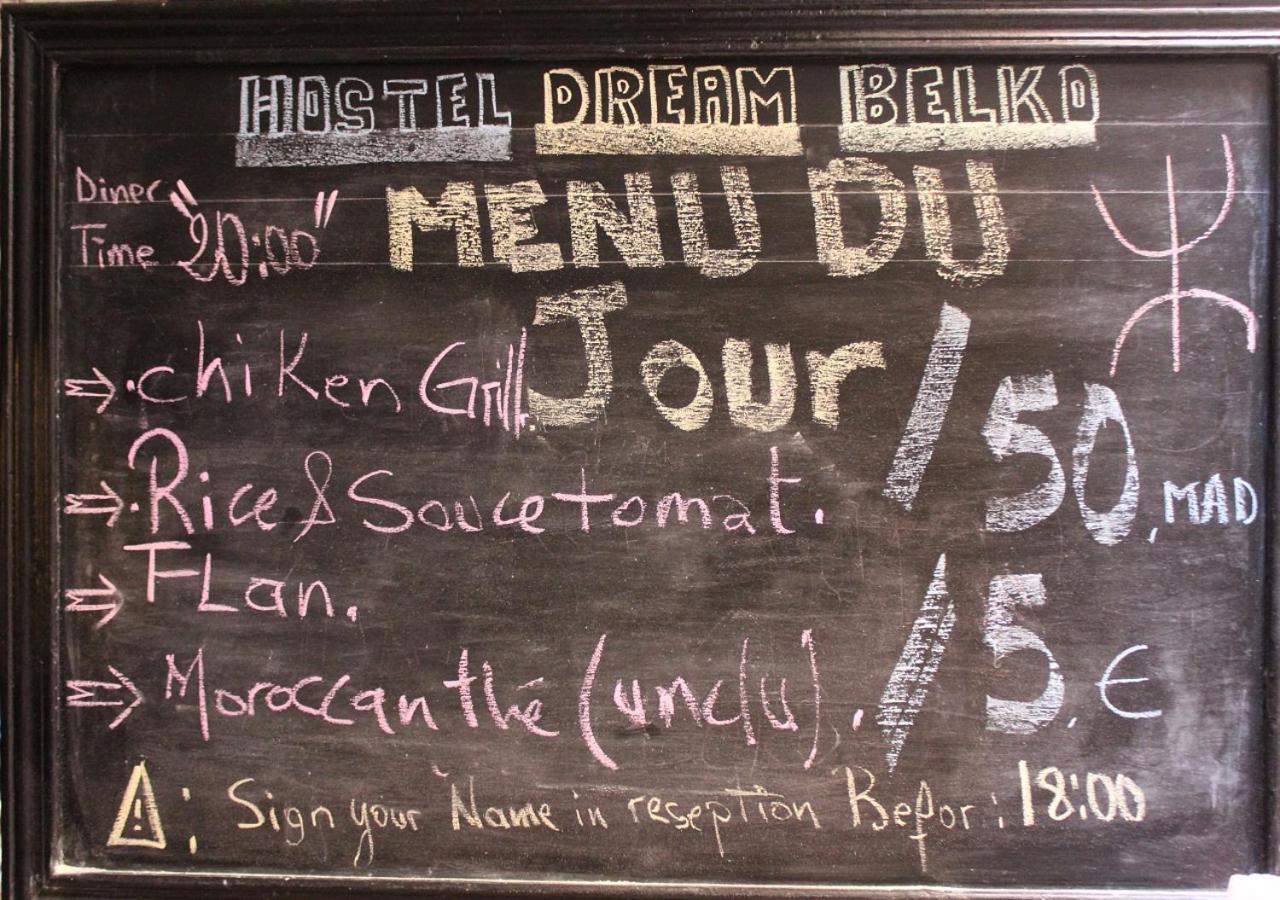 HOSTEL DREAM BELKO
Diner Time "20:00"
MENU DU
Jour
⇒ .chiKen Grill.
⇒ .Rice & Souce tomat.
⇒ FLan.
⇒ Moroccan thé (unclu).
/50, MAD
/5, €
⚠: Sign your Name in reseption Befor: 18:00